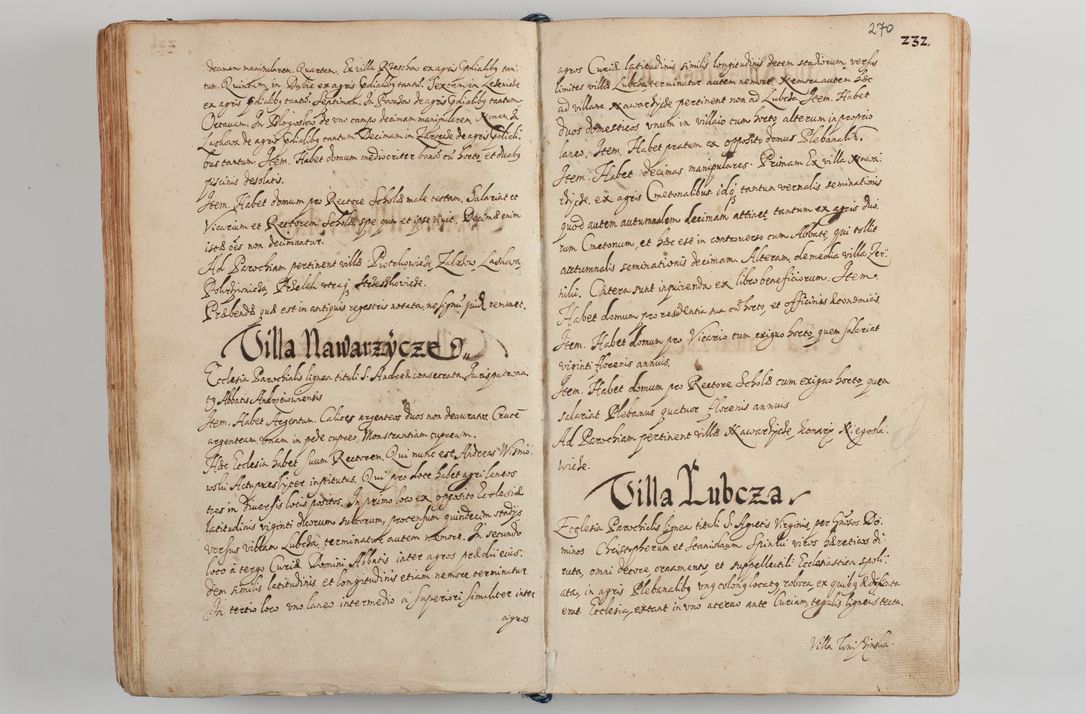 decimam manipularem. Quartam, Ex villa Rzescha ex agris Cpdialibq tan¬
tum. Quintam, in agris Cpdialibq tantũ. Sextam in
ex agris pdialibq tantũ. Septimam, In de agris Cpdialibq tantum
Octavam. In de vno campo decimam manipularem. Nonam In
Lashova de agris Cpdialibq tantum. Decimam in de agris Colõicli
bus tantum. Item. Habet domum mediocriter bonã cũ horto et duabq
piscinis desolatis.
Item. Habet domum pro Rectore Scholæ male tectam, Salariat et
Vicarium et Rectorem Scholæ spe qua et ipse vivit. Decimæ enim
istæ oẽs non decimantur.
Ad Parochiam pertinent villæ
Præbendæ quæ est in antiquis regestris notata, ne signũ quidẽ remanet.
Villa Nawarzycze
Ecclesia Parochialis lignea tituli S. Andreæ consecrata Juris patrona
tq Abbatis Andrzeiowiensis
Item. Habet Argentum. Calices argenteos duos non deauratos. Crucẽ
argenteam vnam in pede cupreo, Monstrantiam cupream.
Hæc Ecclesia habet suum Rectorem. Qui nunc est Andreas Wisnio¬
wski Actu presbyter institutus. Qui pro dote habet agri laneos
tres in diversis locis positos. In primo loco ex opposito Ecclesiæ
latitudinis viginti duorum sulcorum, procensum quindecim stadijs
versus villam Lubcza, terminatur autem nemore. In secundo
loco à tergo Curiæ Domini Abbatis inter agros prædij eius¬
dem similis latitudinis et longitudinis etiam nemore terminatur
In tertio loco vno laneo intermedio à superiori similiter inter
agros
270
232.
agros Curiæ latitudinis similis longitudinis decem stadiorum, versus
limites villæ Lubcza terminatur autem nemore. Nemora autem hæc
ad villam Nawarzycze pertinent non ad Lubcza. Item. Habet
duos domesticos vnum in villa cum horto, alterum in proprio
laneo. Item. Habet pratum ex opposito domus Plebanalis.
Item. Habet decimas manipulares. Primam Ex villa Nawar¬
zycze. ex agris Cmetonalibus tantum vernalis seminationis
quod autem autumnalem decimam attinet, tantum ex agris duo
rum Cmetonum, et hæc est in controverso cum Abbate, qui tollit
autumnalis seminationis decimam. Alteram, de media villa
niki. Cætera sunt inquirenda ex libro beneficiorum. Item.
Habet domum pro residentia sua cũ horto, et officinis œconomicis
Item. Habet domum pro Vicario cum exiguo horto, quem salariat
viginti florenis annuis.
Item. Habet domum pro Rectore Scholæ cum exiguo horto, quem
salariat Plebanus quatuor florenis annuis
Ad Parochiam pertinent villæ Nawarzycze, Konary, Niegosla¬
wicze.
Villa Lubcza.
Ecclesia Parochialis lignea tituli S. Agnetis Virginis, per Gñosos Dõ¬
minos Christopherum et Stanislaum Spinki viros hæreticos di¬
ruta, omni decore ornamenti, et suppellectili Ecclesiastica spoli¬
ata, in agris Plebanalibq robora, ex quibq ædificata
erat Ecclesia, extant in vno acervo ante Curiam, tegulis ligneis tecta.
Villa